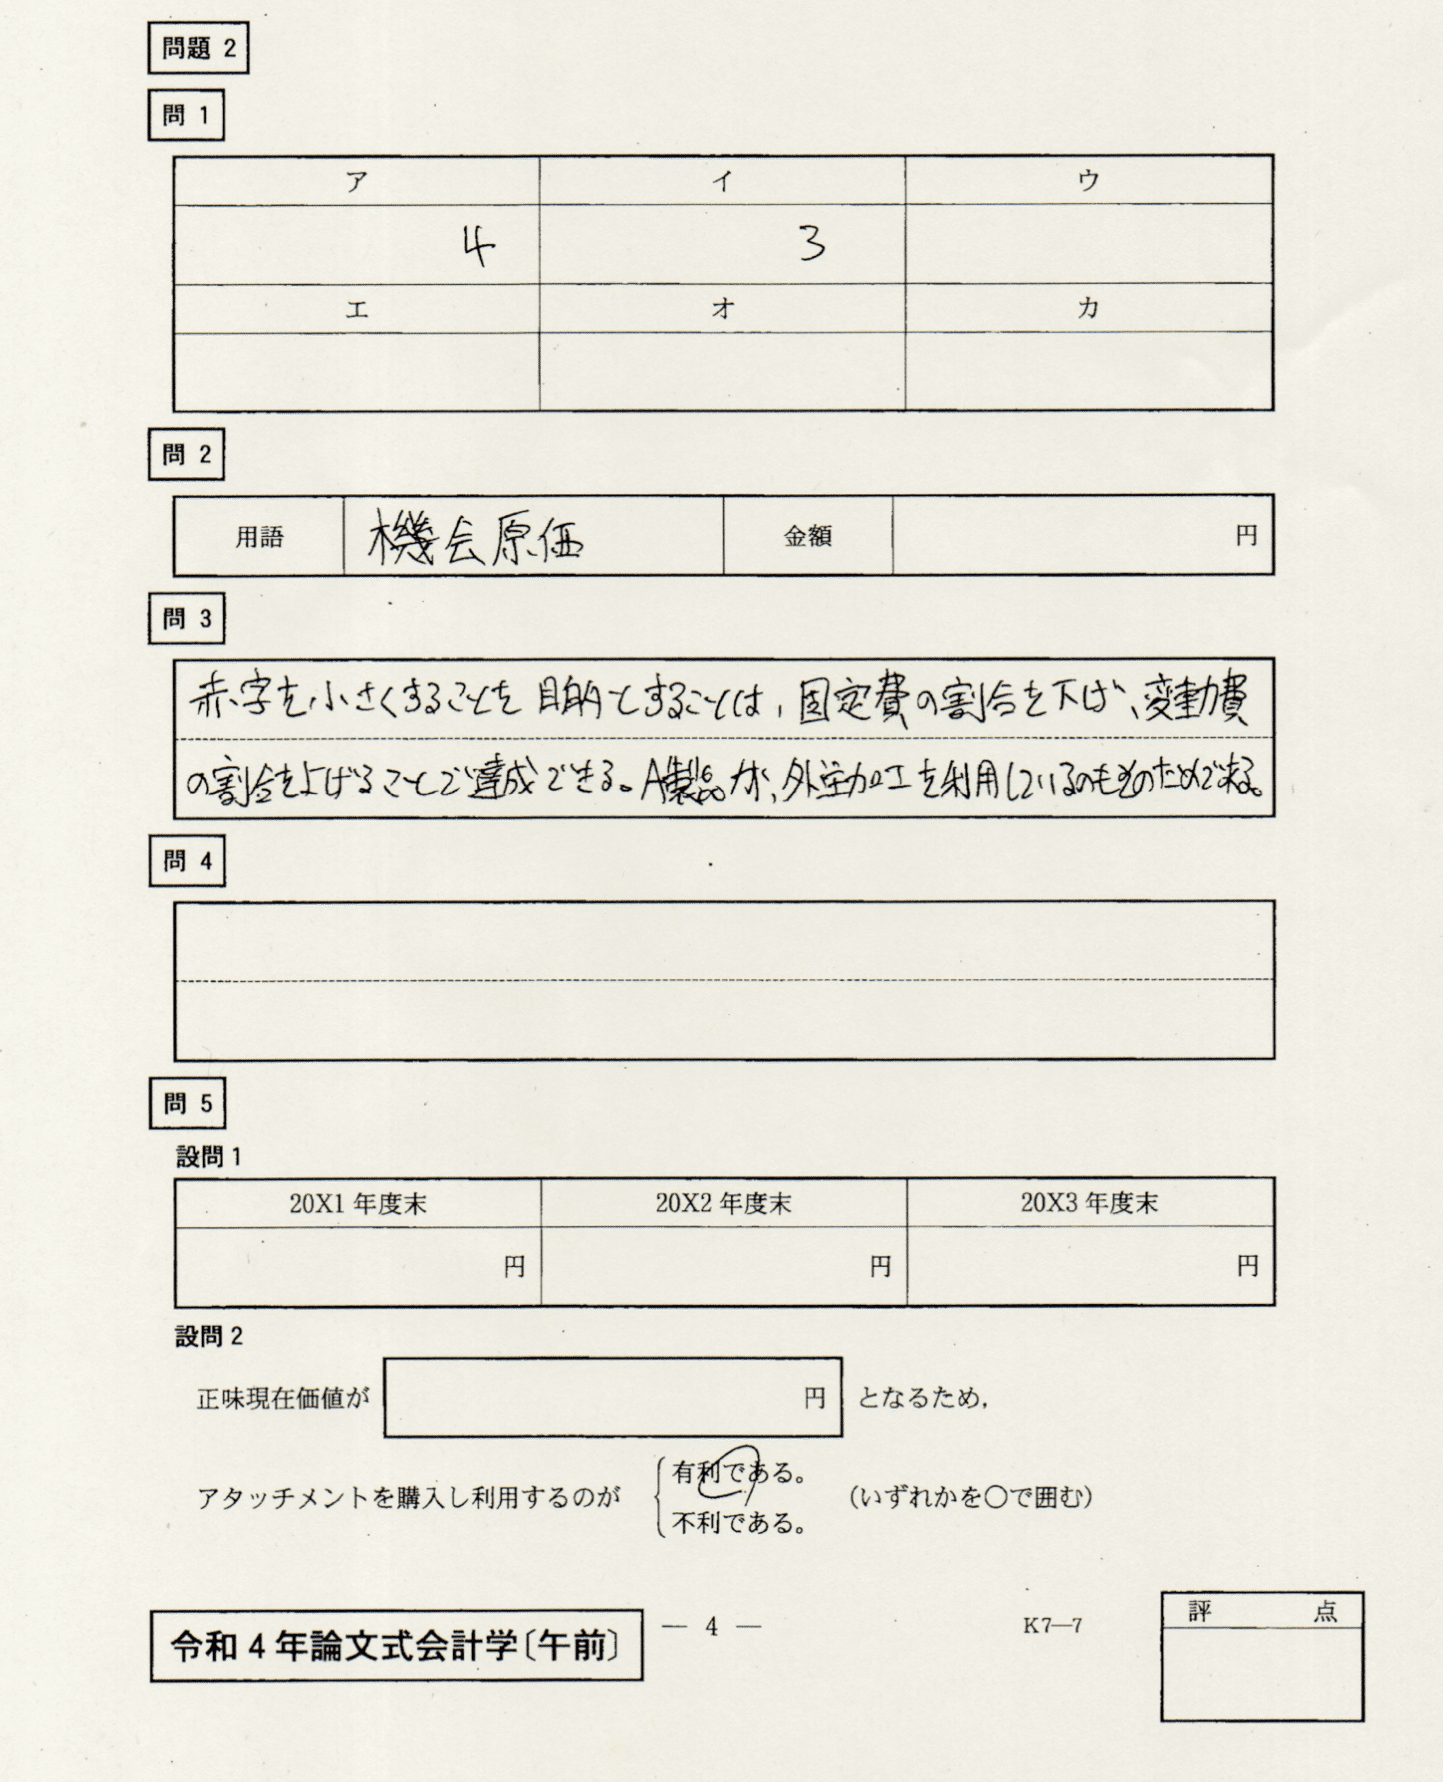 問題 2
問 1
ア イ ウ
4 3
エ オ カ
問 2
用語 機会原価 金額 円
問 3
赤字を小さくすることを目的とすることは、固定費の割合を下げ、変動費
の割合を上げることで達成できる。A製品が、外注加工を利用しているのもそのためである。
問 4
問 5
設問 1
20X1 年度末 20X2 年度末 20X3 年度末
円 円 円
設問 2
正味現在価値が 円 となるため,
有利である。
アタッチメントを購入し利用するのが (いずれかを○で囲む)
不利である。
評 点
令和 4 年論文式会計学〔午前〕 — 4 — K7—7